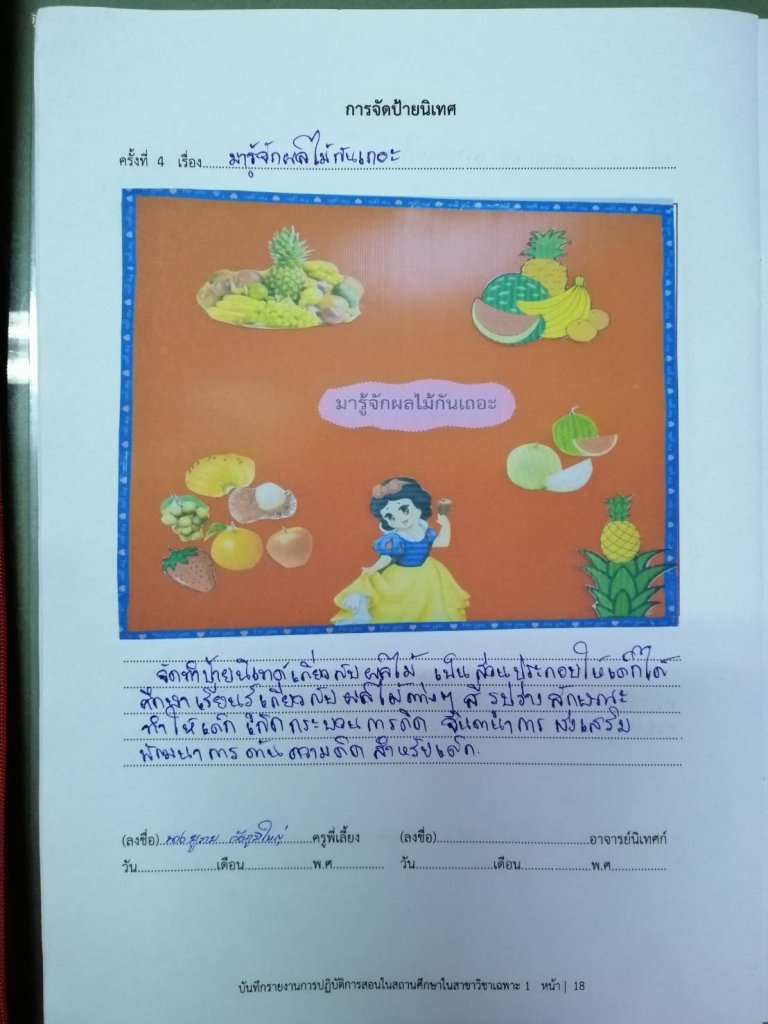 การจัดป้ายนิเทศ
ครั้งที่ 4 เรื่อง มารู้จักผลไม้กันเถอะ
มารู้จักผลไม้กันเถอะ
จัดทำป้ายนิเทศเกี่ยวกับผลไม้ เป็นส่วนประกอบให้เด็กได้
ศึกษา เรียนรู้เกี่ยวกับผลไม้ต่างๆ สี รูปร่าง ลักษณะ
ทำให้เด็กเกิดกระบวนการคิด จินตนาการ ส่งเสริม
พัฒนาการด้านความคิดสำหรับเด็ก.
(ลงชื่อ) ครูพี่เลี้ยง (ลงชื่อ) อาจารย์นิเทศก์
วัน เดือน พ.ศ. วัน เดือน พ.ศ.
บันทึกรายงานการปฏิบัติการสอนในสถานศึกษาในสาขาวิชาเฉพาะ 1 หน้า | 18